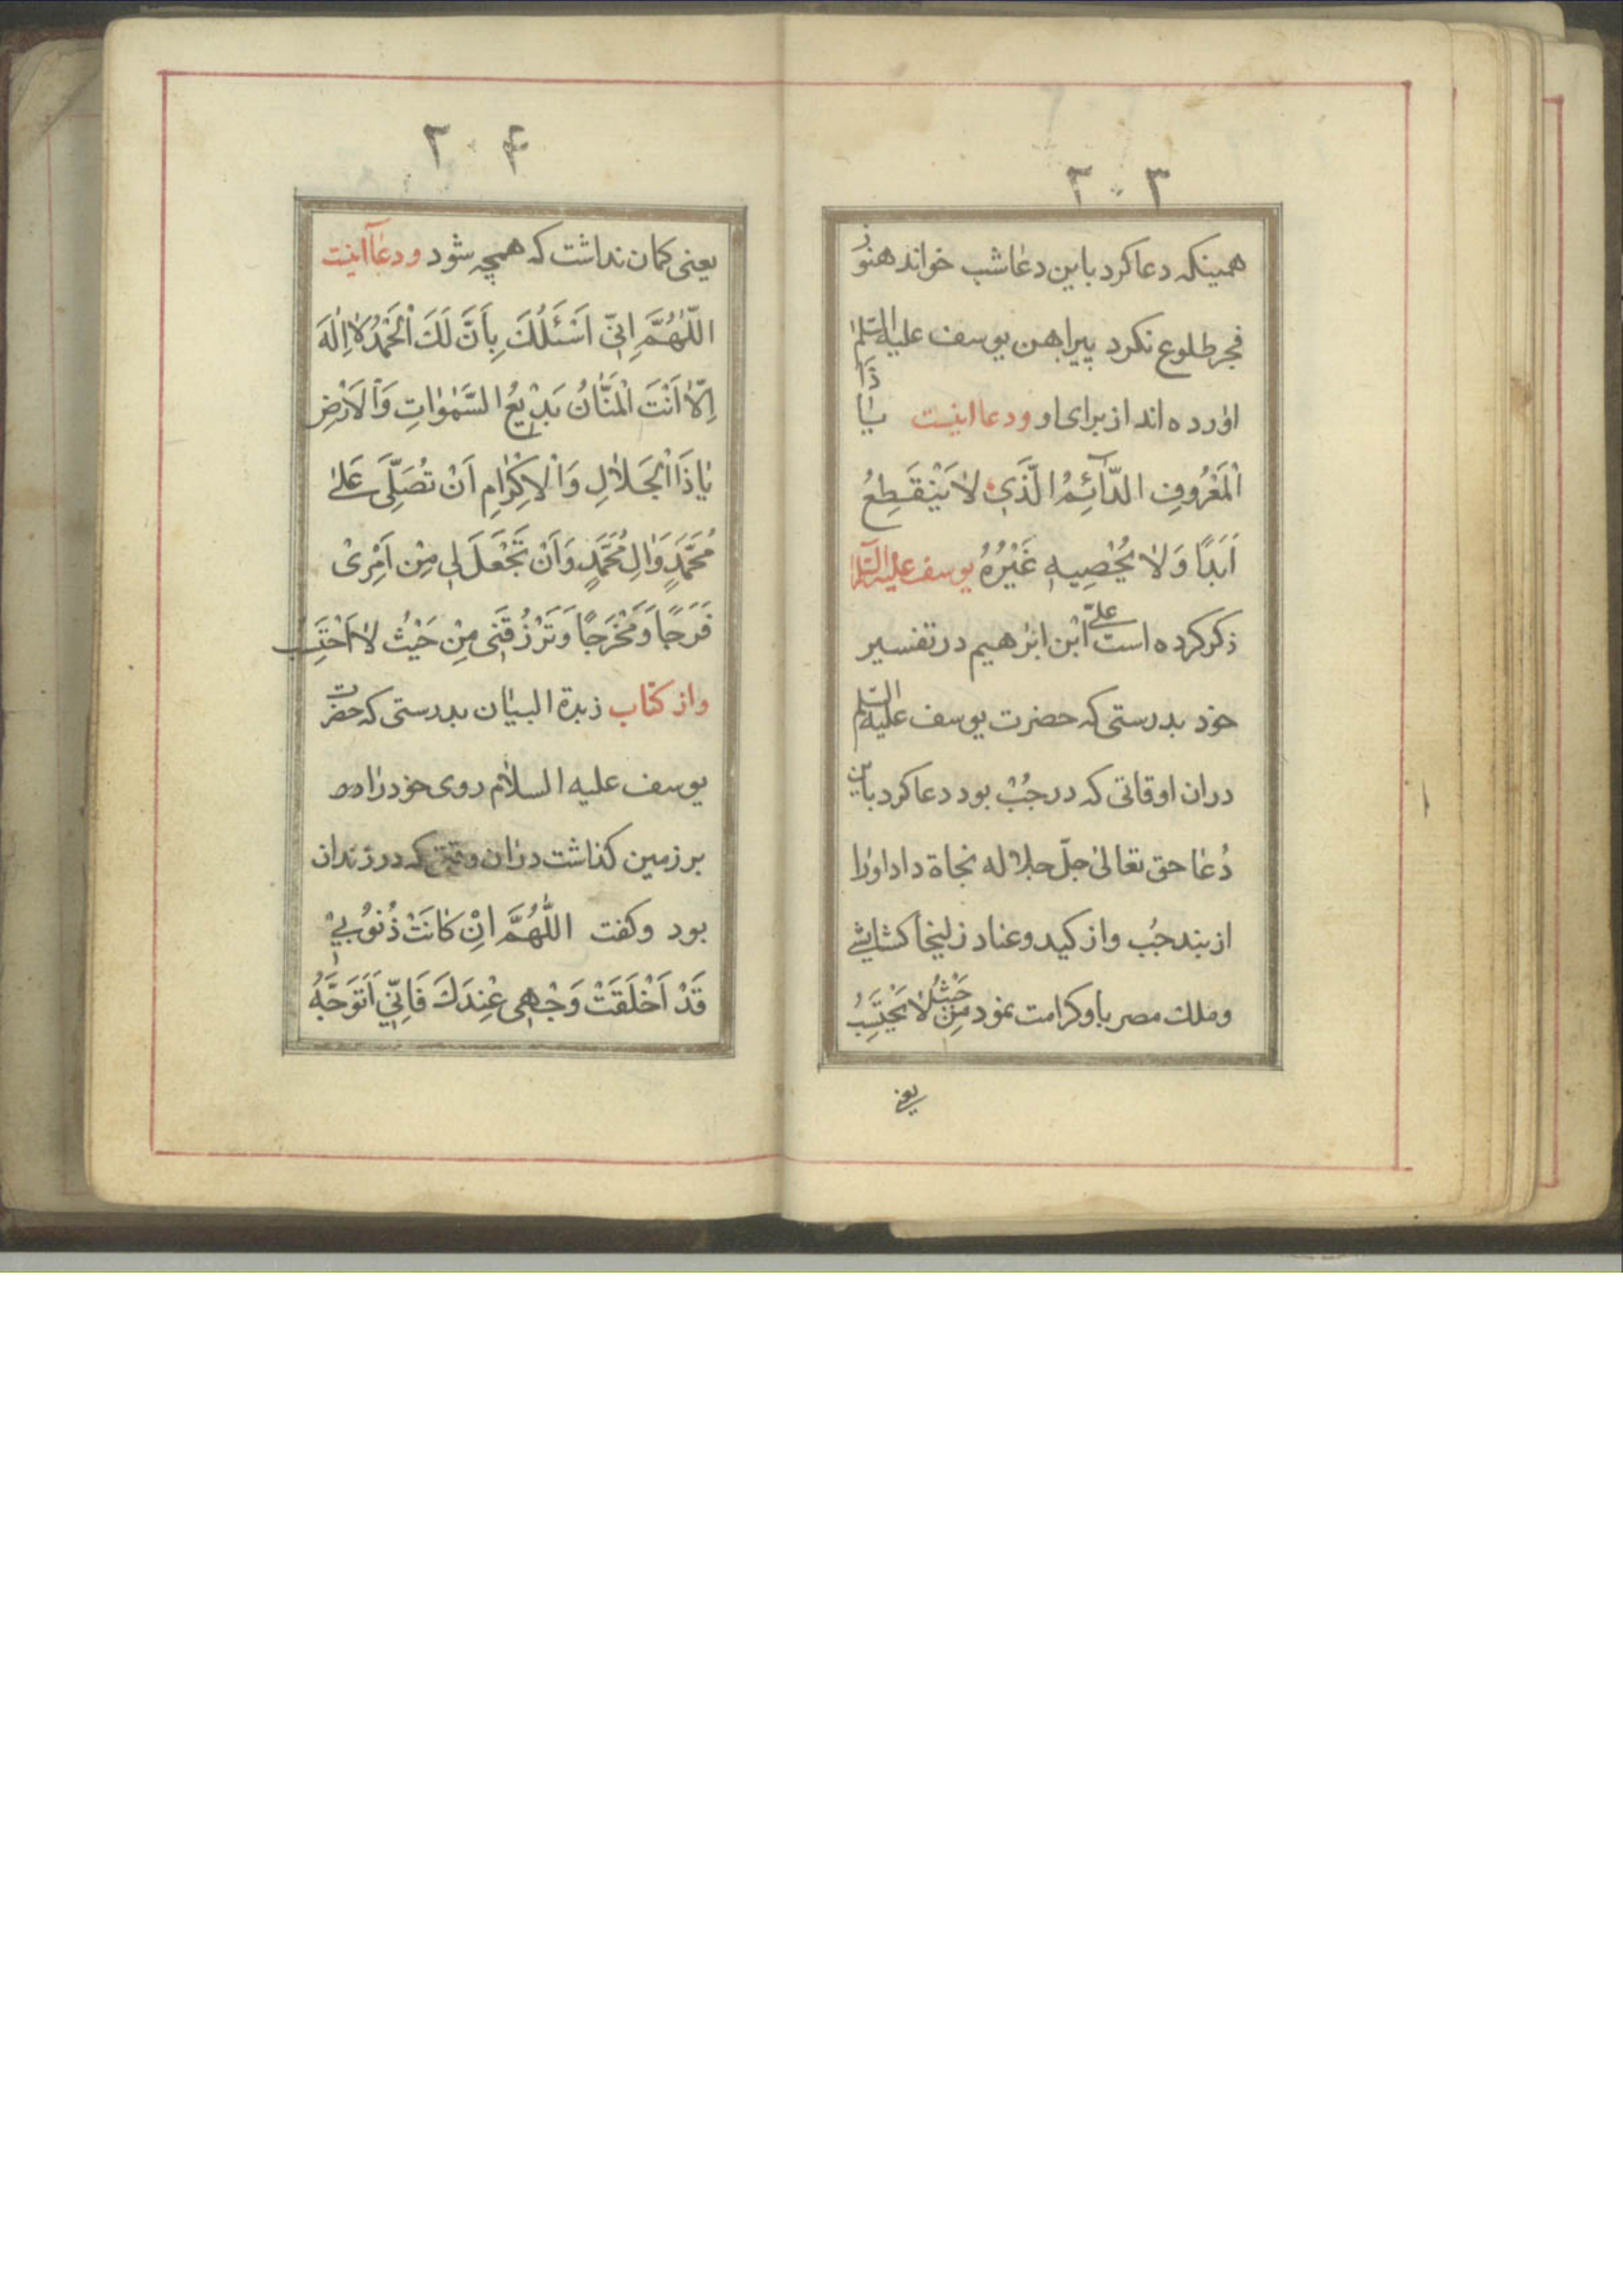 ۲۰۳
همینکه دعا کرد باین دعا شب خواند هنوز
فجر طلوع نکرد پیراهن یوسف علیه السّلم
اورده اند از برای او ودعا اینست یا ذا
الْمَعْرُوفِ الدّآئِمُ الَّذَي لٰا يَنْقَطِعُ
اَبَدًا وَلٰا يُحْصِيهِ غَيْرُهُ یوسف علیه السّلم
ذکر کرده است علیّ ابْن ابرٰهیم در تفسیر
خود بدرستی که حضرت یوسف علیه السّلم
دران اوقاتی که در جُبْ بود دعا کرد باین
دُعٰا حق تعالیٰ جلّ جلاله نجاة داد اورا
از بند جُب واز کید وعناد زلیخا کشایشی
وملك مصر باو کرامت نمود مِنْ حَيْثُ لٰا يَحْتَسِبُ
یعنی
۲۰۴
یعنی کمان نداشت که همچه شود ودعآ اینست
اللّٰهُمَّ اِنّي اَسْئَلُكَ بِاَنَّ لَكَ الْحَمْدُ لٰا اِلٰهَ
اِلّٰا اَنْتَ الْمَنّٰانُ بَدِيْعُ السَّمٰوٰاتِ وَالْاَرْضِ
يٰا ذَا الْجَلٰالِ وَالْاِكْرٰامِ اَنْ تُصَلِّيَ عَلیٰ
مُحَمَّدٍ وَاٰلِ مُحَمَّدٍ وَاَنْ تَجْعَلَ لي مِنْ اَمْرِیْ
فَرَجًا وَمَخْرَجًا وَتَرْزُقَنی مِنْ حَيْثُ لٰا اَحْتَسِبُ
واز کتاب زبدة البیٰان بدرستی که حضرت
یوسف علیه السلام روی خود رٰا
بر زمین کذاشت درٰان وقتی که در زندان
بود وکفت اللّٰهُمَّ اِنْ كٰانَتْ ذُنُوبيْ
قَدْ اَخْلَقَتْ وَجْهی عِنْدَكَ فَاِنّي اَتَوَجَّهُ